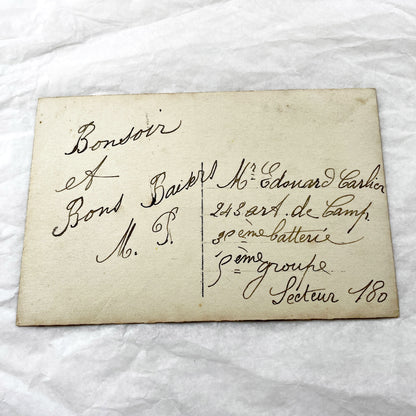 Bonsoir
et
Bons Baisers
M. P.
Mr. Edouard Carlier
243 art. de Camp
3ème batterie
5ème groupe
Secteur 180